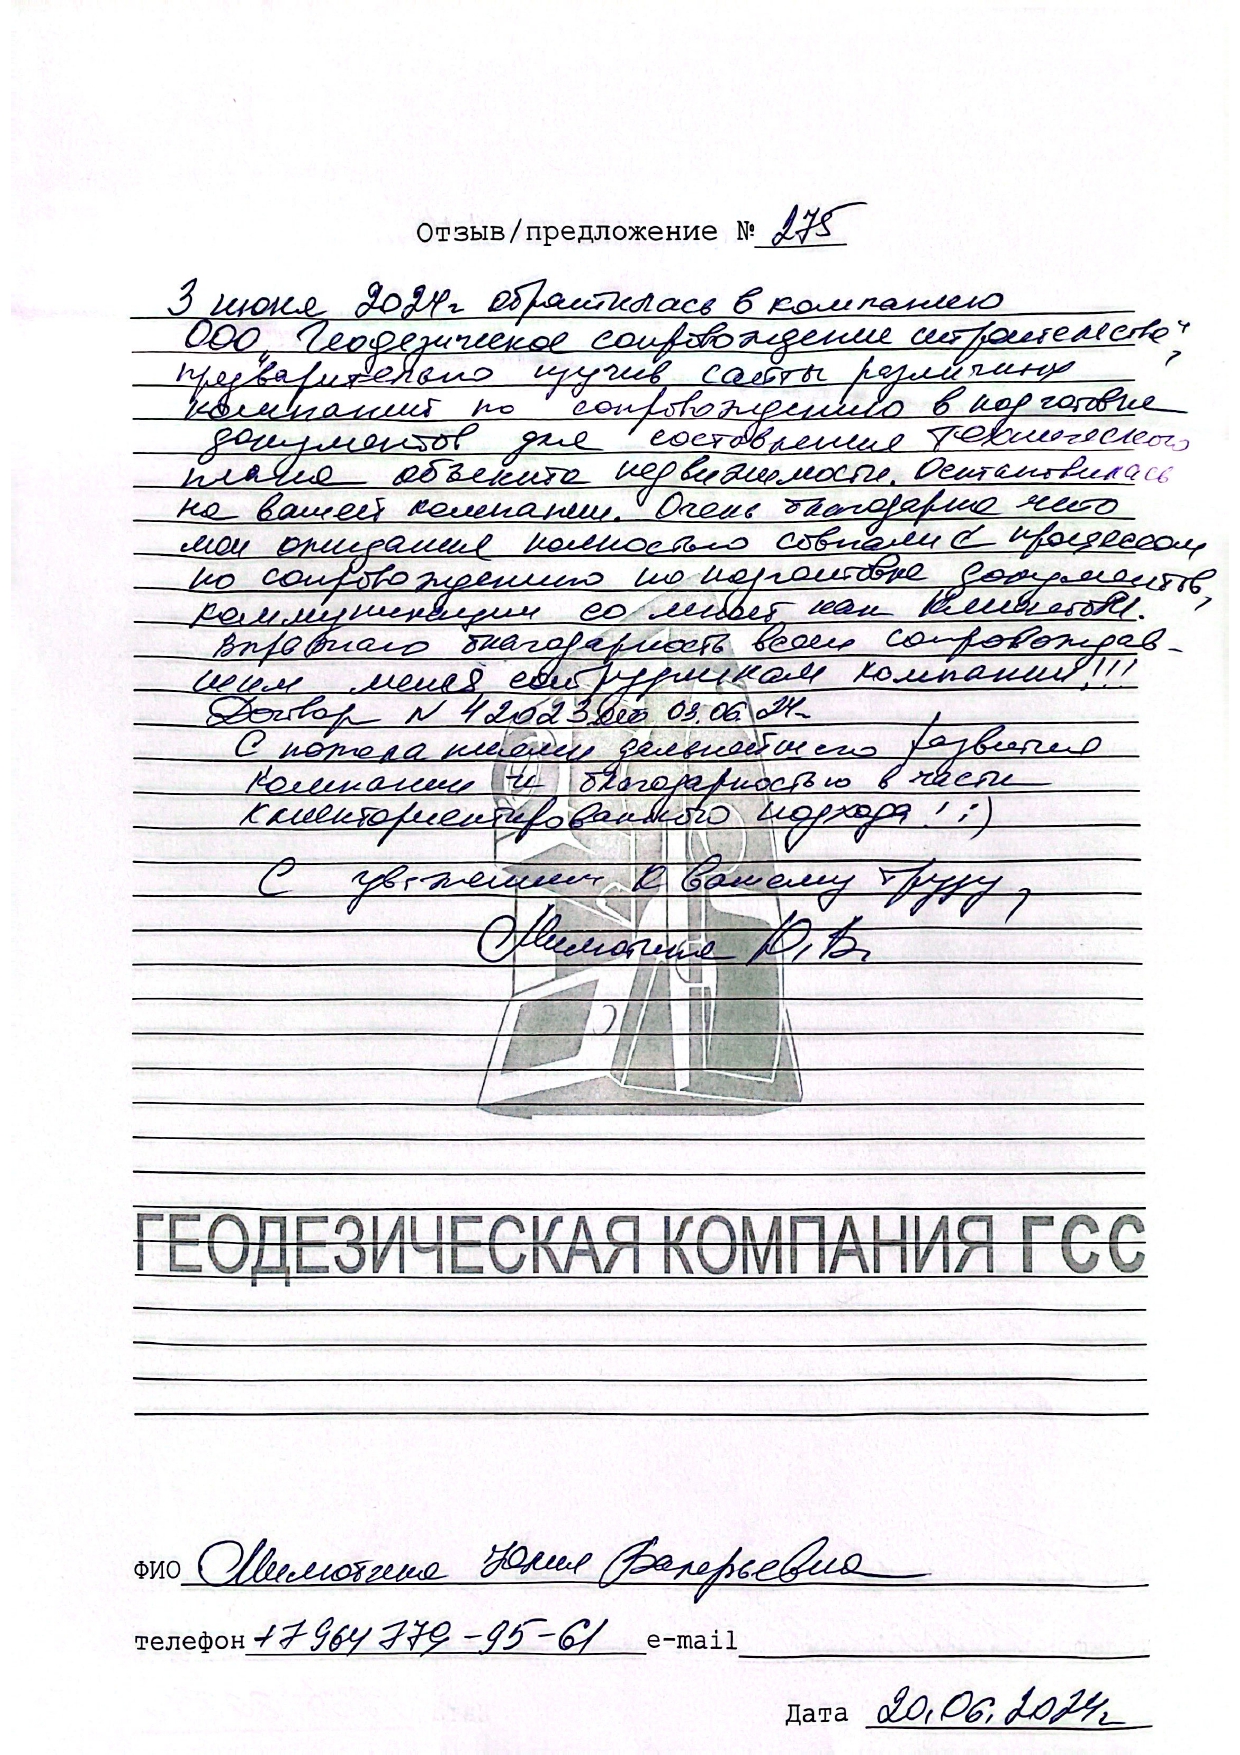 Отзыв/предложение № 275
3 июня 2024г обратилась в компанию
ООО „Геодезическое сопровождение строительства",
предварительно изучив сайты различных
компаний по сопровождению в подготовке
документов для составления технического
плана объекта недвижимости. Остановилась
на вашей компании. Очень благодарна что
мои ожидания полностью совпали с процессом
по сопровождению по подготовке документов,
коммуникации со мной как клиентом.
Выражаю благодарность всем сопровождав-
шим меня сотрудникам компании!!!
Договор N 42023 от 03.06.24г.
С пожеланиями дальнейшего развития
компании и благодарностью в части
клиенториентированного подхода! :)
С уважением к вашему труду,
Ю.В.
ГЕОДЕЗИЧЕСКАЯ КОМПАНИЯ ГСС
ФИО Юлия Валерьевна
телефон +7 964 779-95-61 e-mail
Дата 20.06.2024г